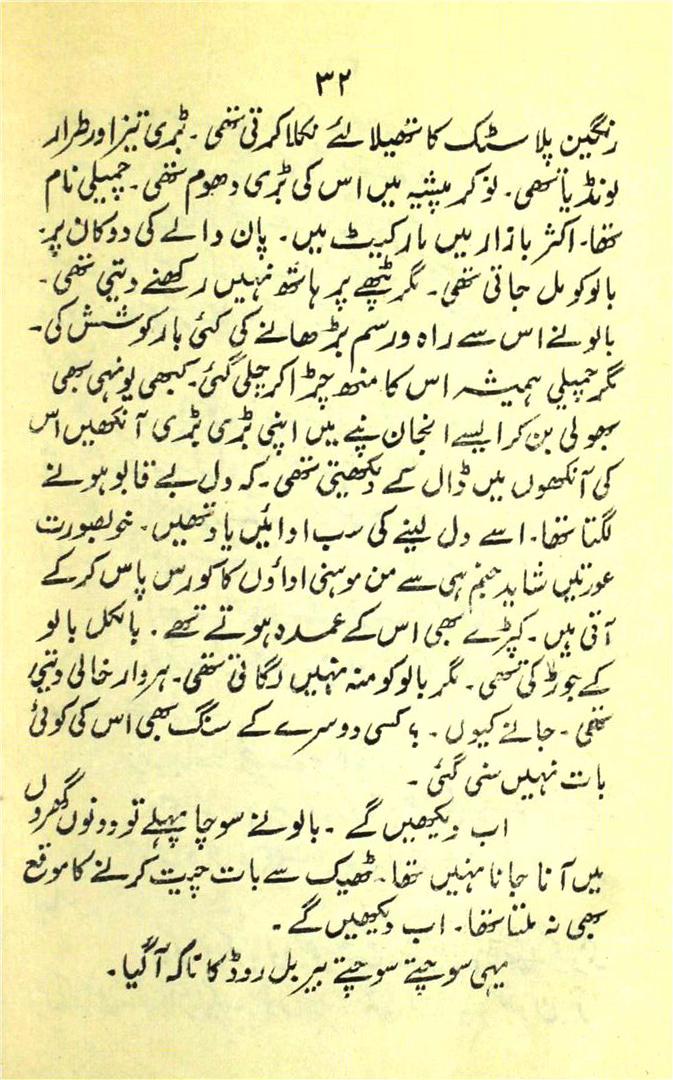 ۳۲
رنگین پلاسٹک کا تھیلا لئے نکلا کرتی تھی۔ بڑی تیز اور طرار
لونڈیا تھی۔ نوکر پیشہ میں اس کی بڑی دھوم تھی۔ چمپیلی نام
تھا۔ اکثر بازار میں مارکیٹ میں۔ پان والے کی دوکان پر۔
بالو کو مل جاتی تھی۔ مگر پٹھے پر ہاتھ نہیں رکھنے دیتی تھی۔
بالو نے اس سے راہ و رسم بڑھانے کی کئی بار کوشش کی۔
مگر چمپیلی ہمیشہ اس کا منھ چڑا کر چلی گئی۔ کبھی یونہی سبھی
بھولی بن کر ایسے انجان پنے میں اپنی بڑی بڑی آنکھیں اس
کی آنکھوں میں ڈال کے دیکھتی تھی۔ کہ دل بے قابو ہونے
لگتا تھا۔ اسے دل لینے کی سب ادائیں یاد تھیں۔ خوبصورت
عورتیں شاید جنم ہی سے من موہنی اداؤں کا کورس پاس کر کے
آتی ہیں۔ کپڑے بھی اس کے عمدہ ہوتے تھے۔ بالکل بالو
کے جوڑ کی تھی۔ مگر بالو کو منہ نہیں لگاتی تھی۔ ہر وار خالی دیتی
تھی۔ جانے کیوں۔ ؟ کسی دوسرے کے سنگ بھی اس کی کوئی
بات نہیں سنی گئی۔
اب دیکھیں گے۔ بالو نے سوچا پہلے تو دونوں گھروں
میں آنا جانا نہیں تھا۔ ٹھیک سے بات چیت کرنے کا موقع
بھی نہ ملتا تھا۔ اب دیکھیں گے۔
یہی سوچتے سوچتے بیربل روڈ کا ناکہ آ گیا۔